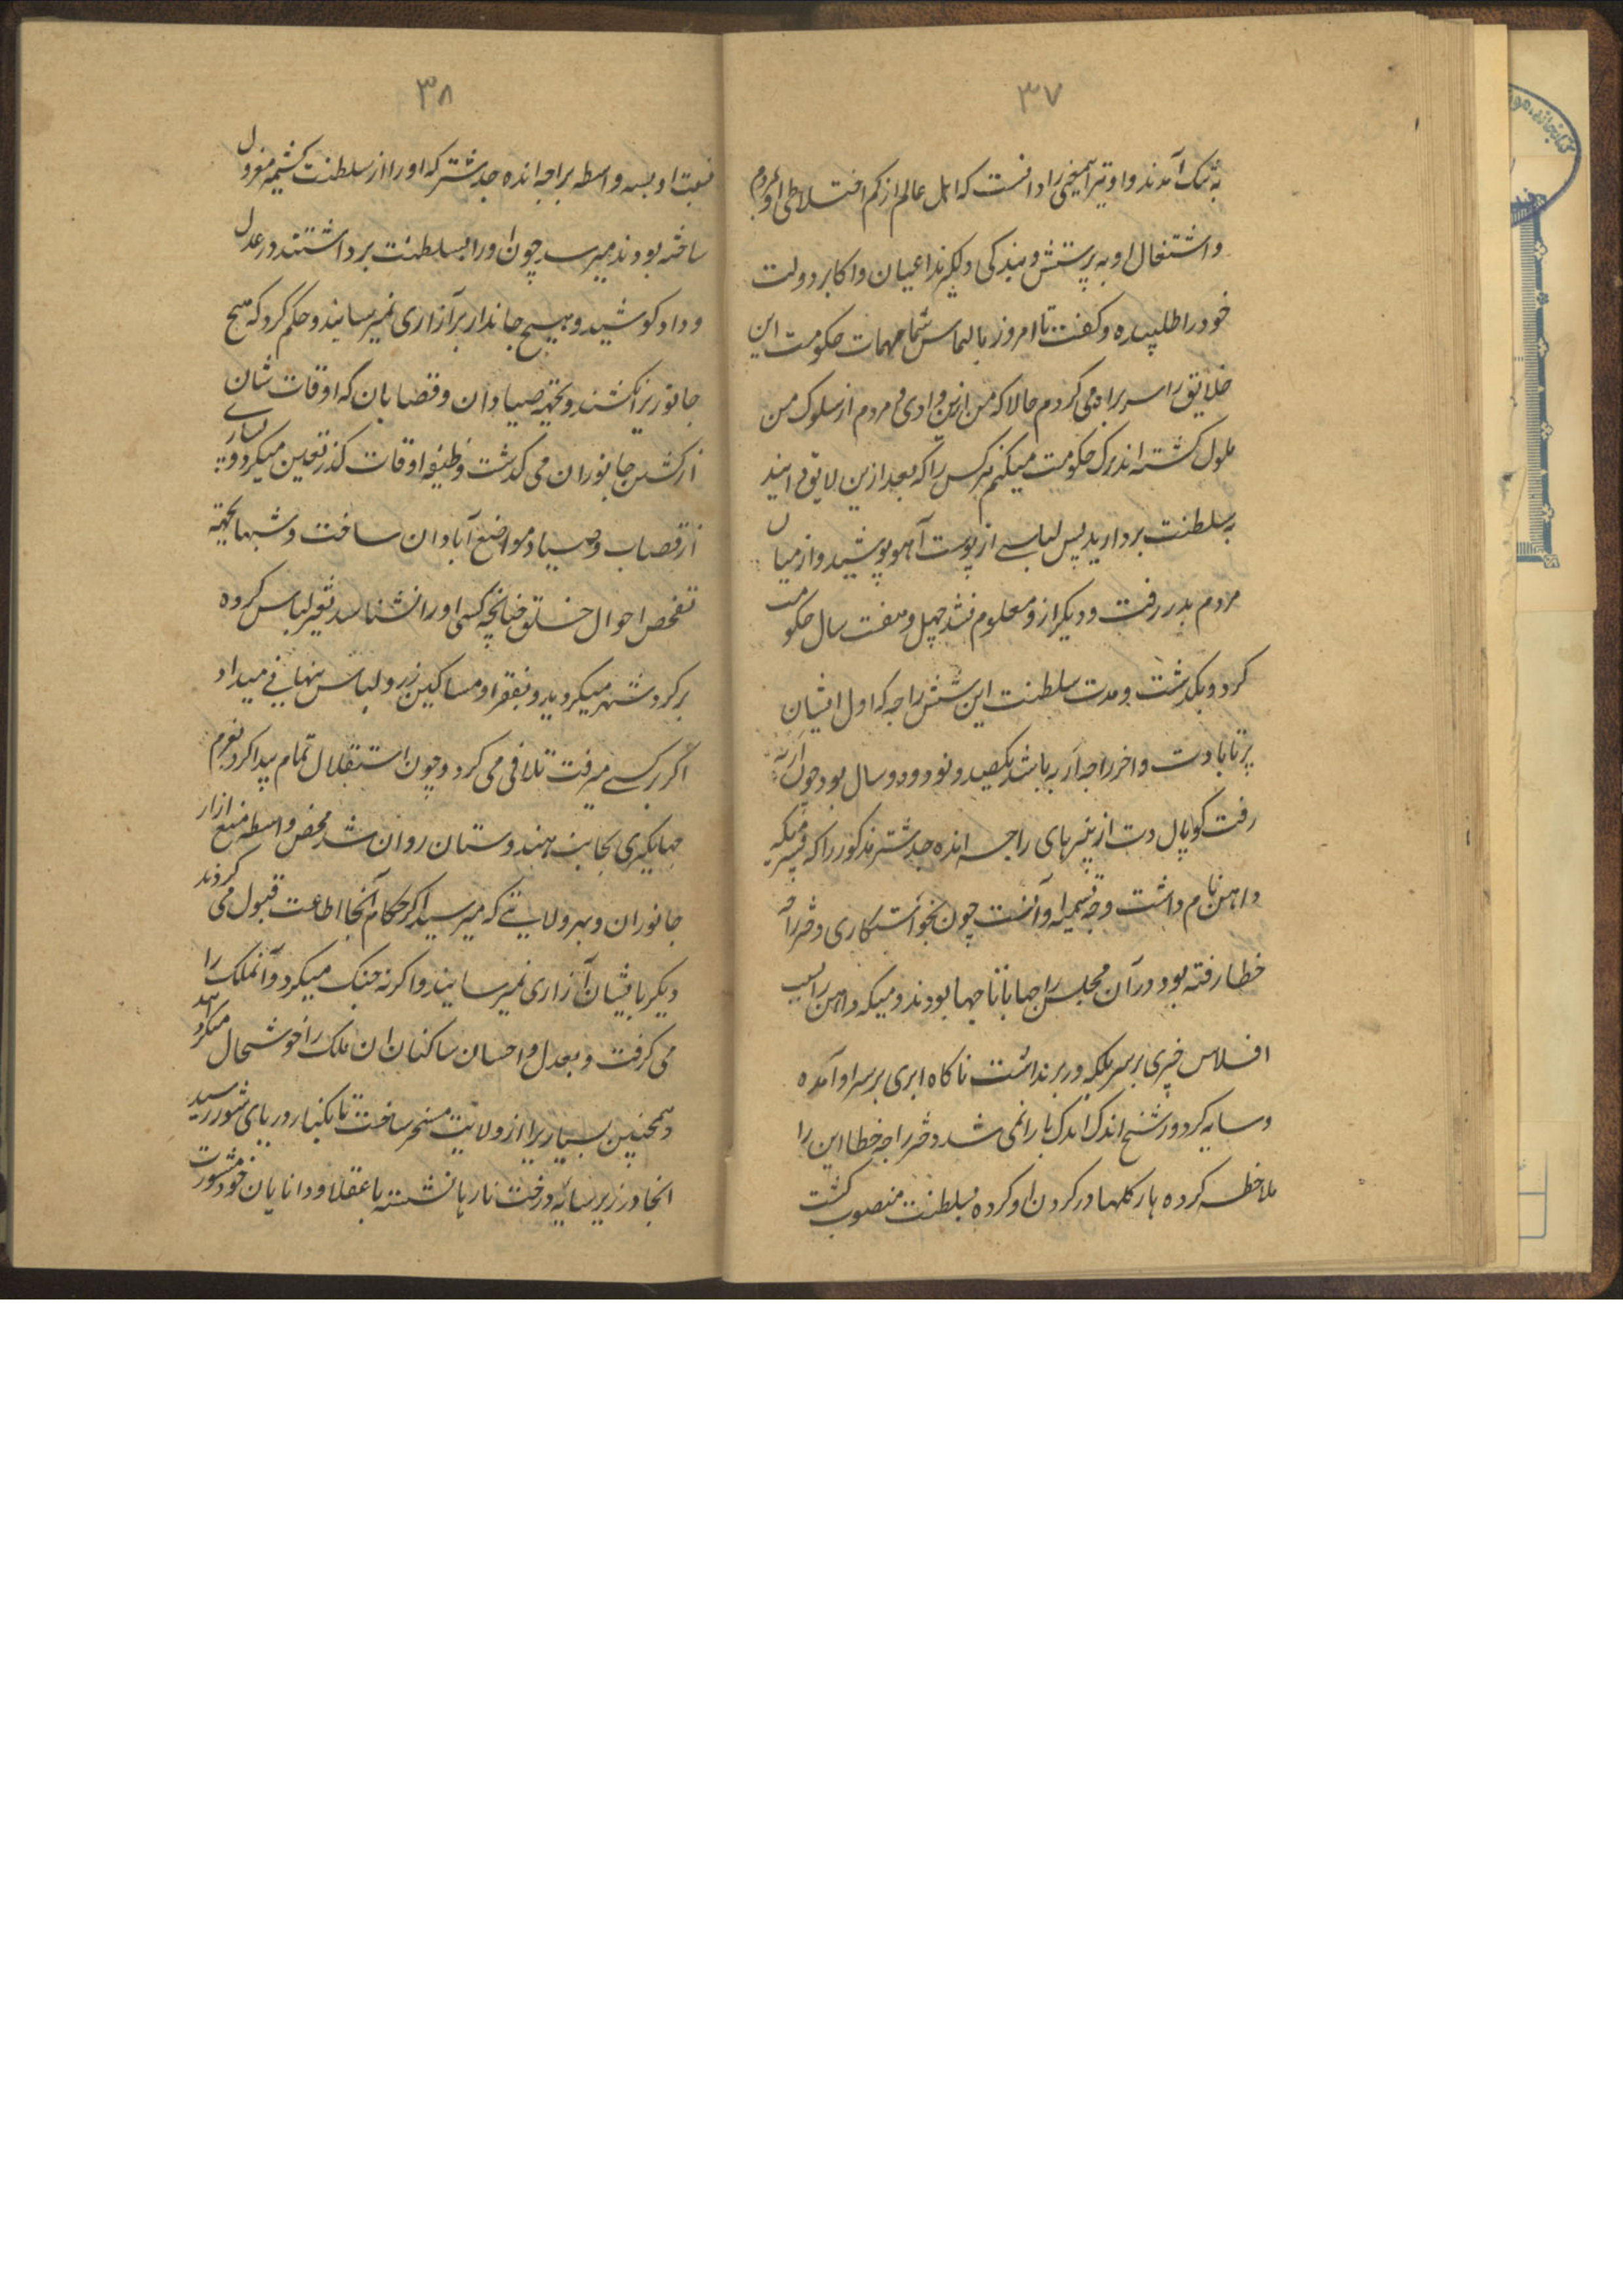 ۳۷
به تنگ آمدند و او نیز این معنی را دانست که اهل عالم از کم اختلاطی او بمردم
و اشتغال او به پرستش و بندگی دلگیرند اعیان و اکابر دولت
خود را طلبیده و گفت تا امروز بالتماس شما مهمات حکومت این
خلایق را سربراهی می کردم حالا که من ازین وادی و مردم از سلوک من
ملول گشته اند ترک حکومت میکنم هرکس را که بعد ازین لایق دانید
به سلطنت بردارید پس لباسے از پوست آهو پوشید و از میان
مردم بدر رفت و دیگر ازو معلوم نشد چهل و هفت سال حکومت
کرد و بگذشت و مدت سلطنت این شش راجه که اول ایشان
پرتابادت و اخر راجه آریه باشد یکصد و نود و دو سال بود چون آریه
رفت گوپال دت از پسرهای راجه انده جدشتر مذکور را که پسر میگه
واهن نام داشت وجه تسمیه او آنست چون بخواستکاری دختر راجه
خطا رفته بود در آن مجلس راجها با تاجها بودند و میگه واهن را بسبب
افلاس چیزی بر سر بلکه در بر نداشت ناگاه ابری بر سر او آمده
و سایه کرد و رشح اندک اندک بارانی شد دختر راجه خطا این را
ملاحظه کرده هار گلها در گردن او کرده بسلطنت منصوب گشت
۳۸
نسبت او بسه واسطه براجه انده جدشتر که او را از سلطنت کشیر معزول
ساخته بودند میرسد چون او را بسلطنت برداشتند در عدل
و داد کوشید و هیچ جاندار برا آزاری نمیرسانید و حکم کرد که هیچ
جانور یرا نکشند و بجهته صیادان و قصابان که اوقات شان
از کشتن جانوران می گذشت وظیفه اوقات گذر تعین میکرد و بسیارے
از قصاب و صیاد مواضع آبادان ساخت و شبها بجهته
تفحص احوال خلق چنانچه کسی او را نشناسد تغیر لباس کرده
بر گرد شهر میگردید و بفقرا و مساکین زر و لباس پنهانی میداد
اگر بر کسے میرفت تلافی می کرد و چون استقلال تمام پیدا کرد بعزم
جهانگیری بجانب هندوستان روان شد محض واسطه منع ازار
جانوران و بهر ولایتے که میرسید اگر حکام آنجا اطاعت قبول می کردند
دیگر بایشان آزاری نمیرسانید و اگر نه جنگ میکرد و آنملک را
می گرفت و بعدل و احسان ساکنان ان ملک را خوشحال میکرد
و همچنین بسیار یرا از ولایت مسخر ساخت تا بکنار دریای شور رسید
انجا در زیر سایه درخت نار یا نشسته با عقلا و دانایان خود مشورت